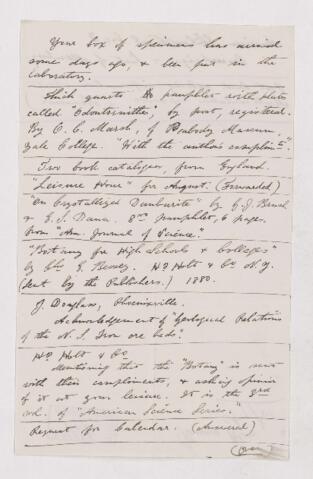 Your box of specimens has arrived
some days ago, & been put in the
laboratory.
Thick quarto pamphlet with plates
called "Odontornithes", by post, registered.
By O. C. Marsh, of Peabody Museum,
Yale College. "With the author's compliments".
Two book catalogues, from England.
"Leisure Hour" for August. (Forwarded)
"On Crystallized Danburite" by G. J. Brush
& E. S. Dana. 8vo pamphlet, 6 pages.
from "Am. Journal of Science".
"Botany for High Schools & Colleges"
by Chs. E. Bessey. Hy Holt & Co N.Y.
(Sent by the Publishers.) 1880.
J. Douglass, Phoenixville.
Acknowledgement of "Geological Relations
of the N. S. Iron ore beds."
Hy Holt & Co
Mentioning that the "Botany" is sent
with their compliments, & asking opinion
of it at your leisure. It is the 3rd
vol. of "American Science Series".
Request for Calendar. (Answered)
(over)